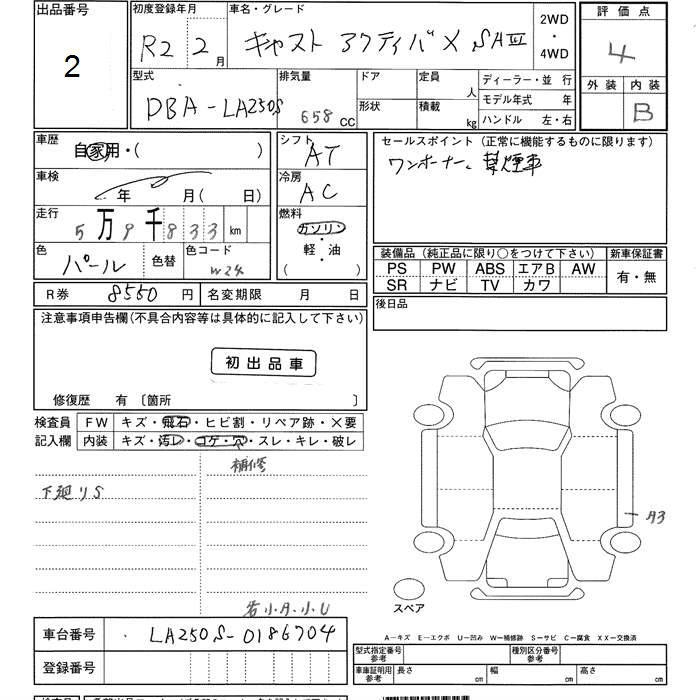 出品番号 初度登録年月 車名・グレード 2WD・4WD 評価点
2 R2 2月 キャスト アクティバX SAⅢ 4
外装 内装
型式 排気量 ドア 定員 人 ディーラー・並 行
DBA-LA250S 658 CC 形状 積載 kg モデル年式 年
ハンドル 左・右 B
車歴 自家用・( ) シフト AT セールスポイント(正常に機能するものに限ります)
ワンオーナー、禁煙車
車検 年 月( 日) 冷房 AC
走行 5万9千833km 燃料 ガソリン・軽・油 ( )
色 パール 色替 色コード W24
装備品(純正品に限り○をつけて下さい) 新車保証書
PS PW ABS エアB AW 有・無
SR ナビ TV カワ
R券 8550円 名変期限 月 日 後日品
注意事項申告欄(不具合内容等は具体的に記入して下さい)
初出品車
修復歴 有 〔箇所 〕
検査員 FW キズ・飛石・ヒビ割・リペア跡・×要
記入欄 内装 キズ・汚レ・コゲ・穴・スレ・キレ・破レ
補修
下廻りS
A3
若小A.小U
スペア
A-キズ E-エクボ U-凹み W-補修跡 S-サビ C-腐食 XX-交換済
車台番号 LA250S-0186704
型式指定番号 参考 種別区分番号 参考
登録番号 車庫証明用 参考 長さ cm 幅 cm 高さ cm